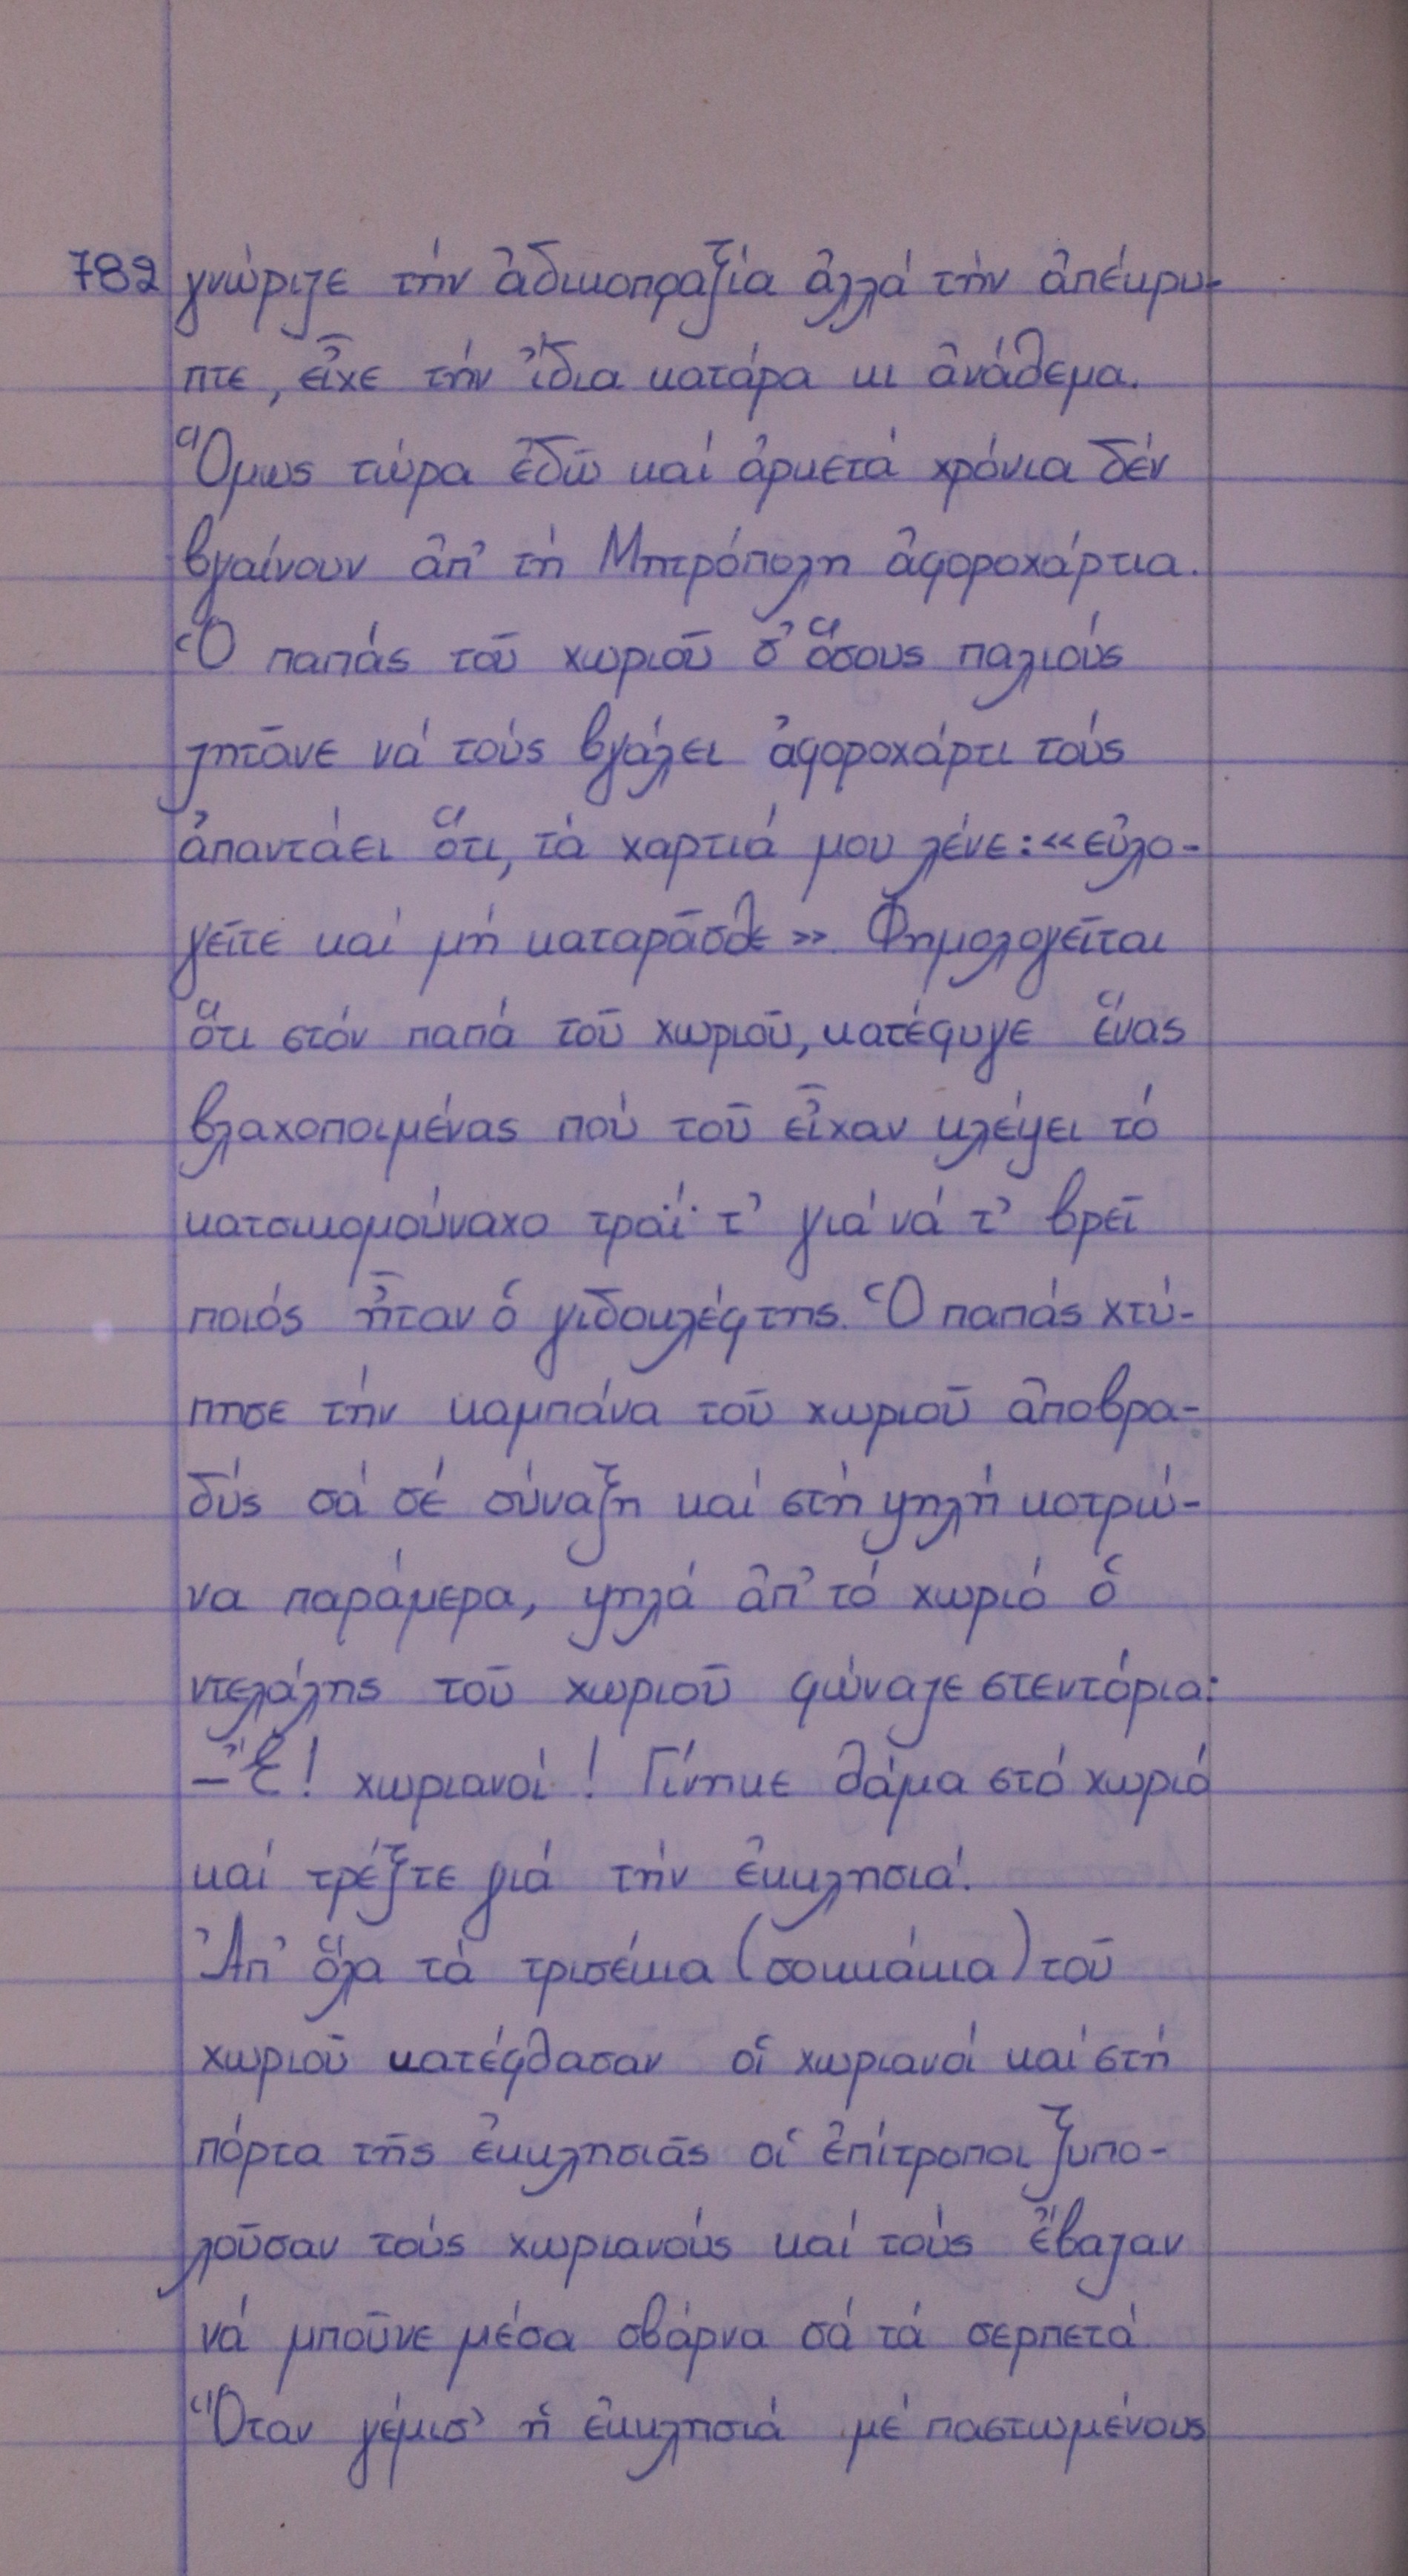 782 γνώριζε τήν ἀδικοπραξία ἀλλά τήν ἀπέκρυ-
πτε, εἶχε τήν ἴδια κατάρα κι ἀνάθεμα.
Ὅμως τώρα ἐδῶ καί ἀρκετά χρόνια δέν
βγαίνουν ἀπ' τή Μητρόπολη ἀφοροχάρτια.
Ὁ παπάς τοῦ χωριοῦ σ' ὅσους παλιούς
ζητᾶνε νά τούς βγάλει ἀφοροχάρτι τούς
ἀπαντάει ὅτι, τά χαρτιά μου λένε: «εὐλο-
γεῖτε καί μή καταρᾶσθε». Φημολογεῖται
ὅτι στόν παπά τοῦ χωριοῦ, κατέφυγε ἕνας
βλαχοποιμένας πού τοῦ εἶχαν κλέψει τό
κατσικομούναχο τραΐ τ' γιά νά τ' βρεῖ
ποιός ἦταν ὁ γιδοκλέφτης. Ὁ παπάς χτύ-
πησε τήν καμπάνα τοῦ χωριοῦ ἀποβρα-
δύς σά σέ σύναξη καί στή ψηλή κοτρώ-
να παράμερα, ψηλά ἀπ' τό χωριό ὁ
ντελάλης τοῦ χωριοῦ φώναζε στεντόρια:
-Ἔ! χωριανοί! Γίνηκε θάμα στό χωριό
καί τρέξτε γιά τήν ἐκκλησιά.
Ἀπ' ὅλα τά τρισέκια (σοκκάκια) τοῦ
χωριοῦ κατέφθασαν οἱ χωριανοί καί στή
πόρτα τῆς ἐκκλησιᾶς οἱ ἐπίτροποι ξυπο-
λοῦσαν τούς χωριανούς καί τούς ἔβαζαν
νά μποῦνε μέσα σβάρνα σά τά σερπετά
Ὅταν γέμισ' ἡ ἐκκλησιά μέ παστωμένους